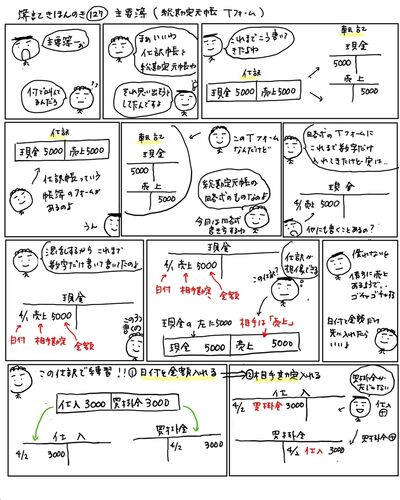 簿記きほんのき127 主要簿(総勘定元帳 Tフォーム)
主要簿…
何で止まってるんだろう
まあいいや
仕訳帳と
総勘定元帳や
仕訳
現金 5000 売上 5000
これまでこう書いて
きたよね
転記
現金
5000
売上
5000
仕訳
現金 5000 売上 5000
仕訳帳っていう
帳簿のフォームが
あるのよ
うん
転記
現金
5000
売上
5000
このTフォーム
なんだけど
総勘定元帳の
略式のものなのよ
今日は略式
書きちゃうね
略式のTフォームに
これまで数字だけ
入れてきたけど実は…
現金
4/1 売上 5000
他にも書くことあるの?
混乱するから これまで
数字だけ書いて書いてたのよ
現金
4/1 売上 5000
日付 相手勘定 金額
現金
4/1 売上 5000
この仕訳は?
仕訳が
想像できる
現金の 左に5000 相手は「売上」
現金 5000 売上 5000
借りないと
借方に売上
あるようで…
ゴチャゴチャするな
日付と金額だけ
先に入れたら
いいよ
この仕訳で練習!!①日付と金額入れる
仕入 3000 買掛金 3000
仕入
4/2 3000
買掛金
4/2 3000
②相手勘定入れる
仕入
4/2 買掛金 3000
買掛金
4/2 仕入 3000